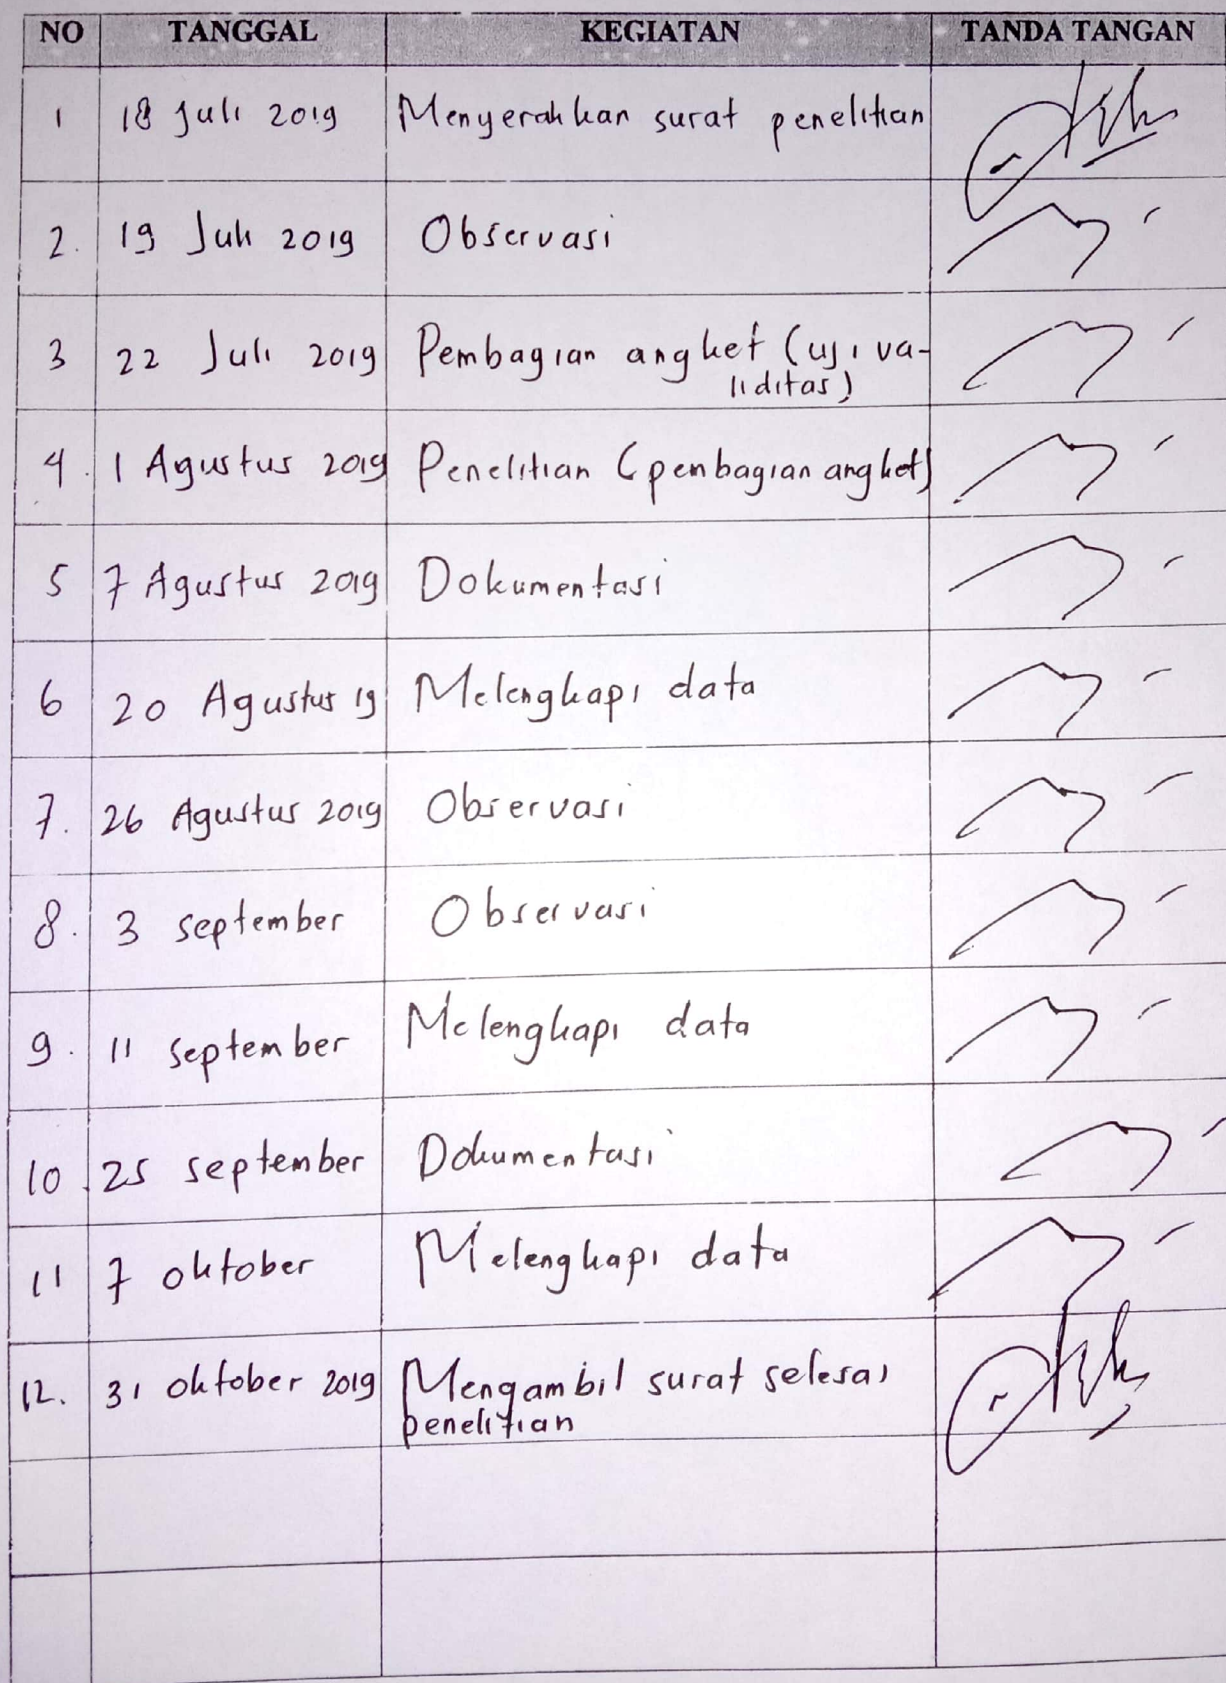 NO TANGGAL KEGIATAN TANDA TANGAN
1 18 Juli 2019 Menyerahkan surat penelitian
2. 19 Juli 2019 Observasi
3 22 Juli 2019 Pembagian angket (uji va-
liditas)
4. 1 Agustus 2019 Penelitian (pembagian angket)
5 7 Agustus 2019 Dokumentasi
6 20 Agustus 19 Melengkapi data
7. 26 Agustus 2019 Observasi
8. 3 september Observasi
9. 11 september Melengkapi data
10. 25 september Dokumentasi
11 7 oktober Melengkapi data
12. 31 oktober 2019 Mengambil surat selesai
penelitian